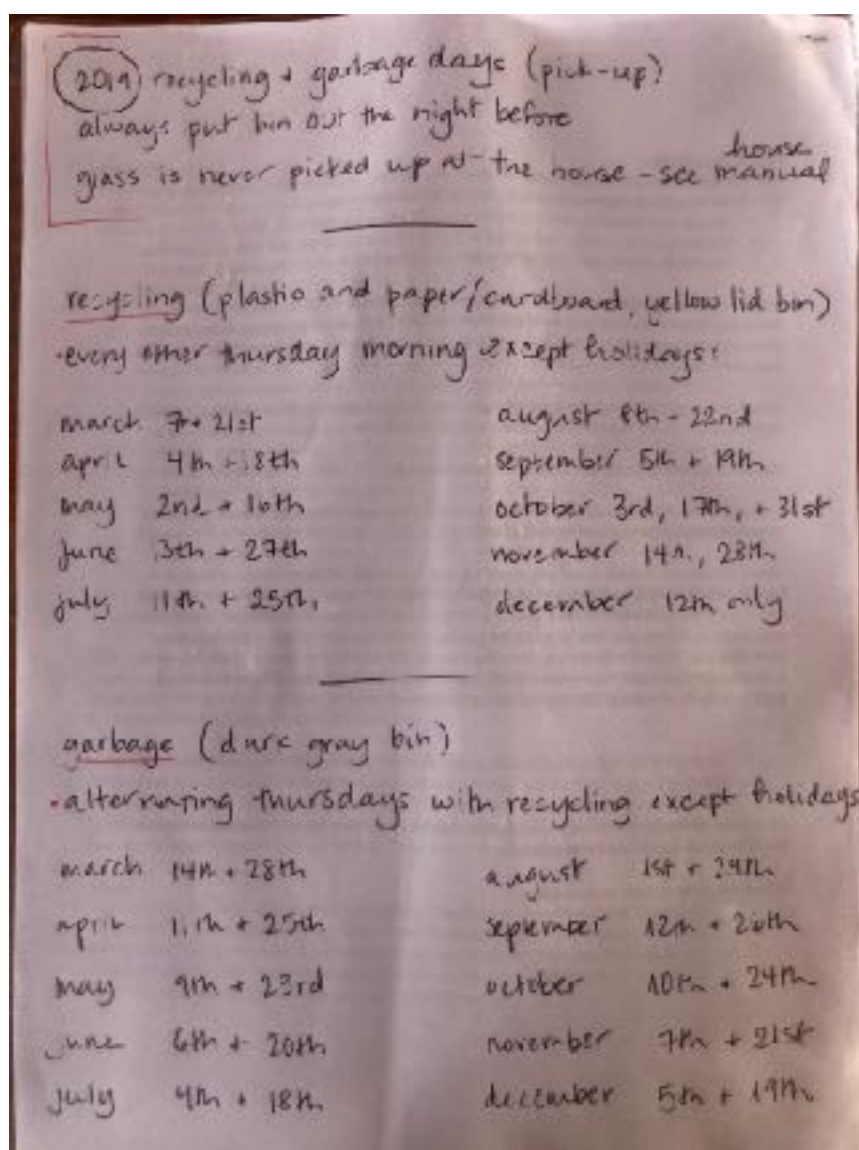 2019 recycling + garbage days (pick-up)
always put bin out the night before
house
glass is never picked up at the house - see manual
recycling (plastic and paper/cardboard, yellow lid bin)
·every other thursday morning except holidays:
march 7 + 21st
april 4th + 18th
may 2nd + 16th
june 13th + 27th
july 11th + 25th
august 8th - 22nd
september 5th + 19th
october 3rd, 17th, + 31st
november 14th, 28th
december 12th only
garbage (dark gray bin)
·alternating thursdays with recycling except holidays
march 14th + 28th
april 11th + 25th
may 9th + 23rd
june 6th + 20th
july 4th + 18th
august 1st + 29th
september 12th + 26th
october 10th + 24th
november 7th + 21st
december 5th + 19th